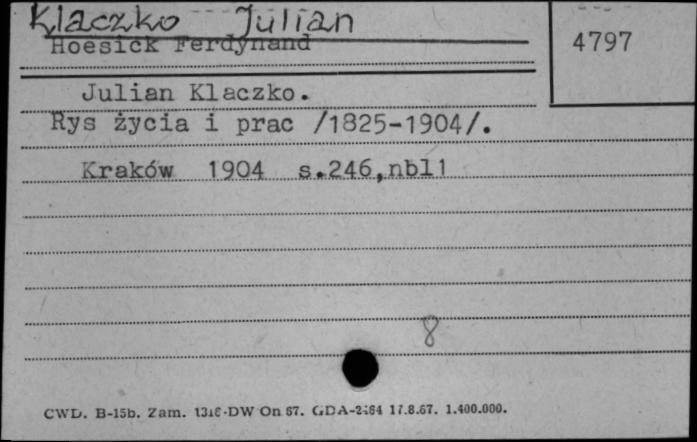 Klaczko Julian
Hoesick Ferdynand
4797
Julian Klaczko.
Rys życia i prac /1825-1904/.
Kraków 1904 s.246,nbl1
8
CWD. B-15b. Zam. DW On 67. GDA- 17.8.67. 1.400.000.